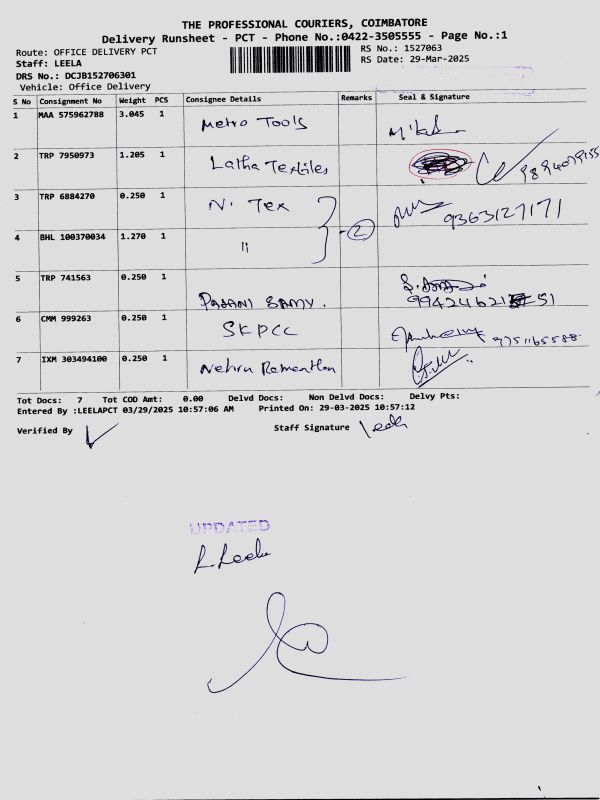 THE PROFESSIONAL COURIERS, COIMBATORE
Delivery Runsheet - PCT - Phone No.:0422-3505555 - Page No.:1
Route: OFFICE DELIVERY PCT
RS No.: 1527063
Staff: LEELA
RS Date: 29-Mar-2025
DRS No.: DCJB152706301
Vehicle: Office Delivery
S No Consignment No Weight PCS Consignee Details Remarks Seal & Signature
1 MAA 575962788 3.045 1 Metro Tools
2 TRP 7950973 1.205 1 Latha Textiles
3 TRP 6884270 0.250 1 N. Tex 9363127171
4 BHL 100370034 1.270 1 " 2
5 TRP 741563 0.250 1 PALANI SAMY.
6 CMM 999263 0.250 1 SKPCC 9751165588
7 IXM 303494100 0.250 1 Nehru
Tot Docs: 7 Tot COD Amt: 0.00 Delvd Docs: Non Delvd Docs: Delvy Pts:
Entered By :LEELAPCT 03/29/2025 10:57:06 AM Printed On: 29-03-2025 10:57:12
Verified By Staff Signature Leela
UPDATED
L. Leela